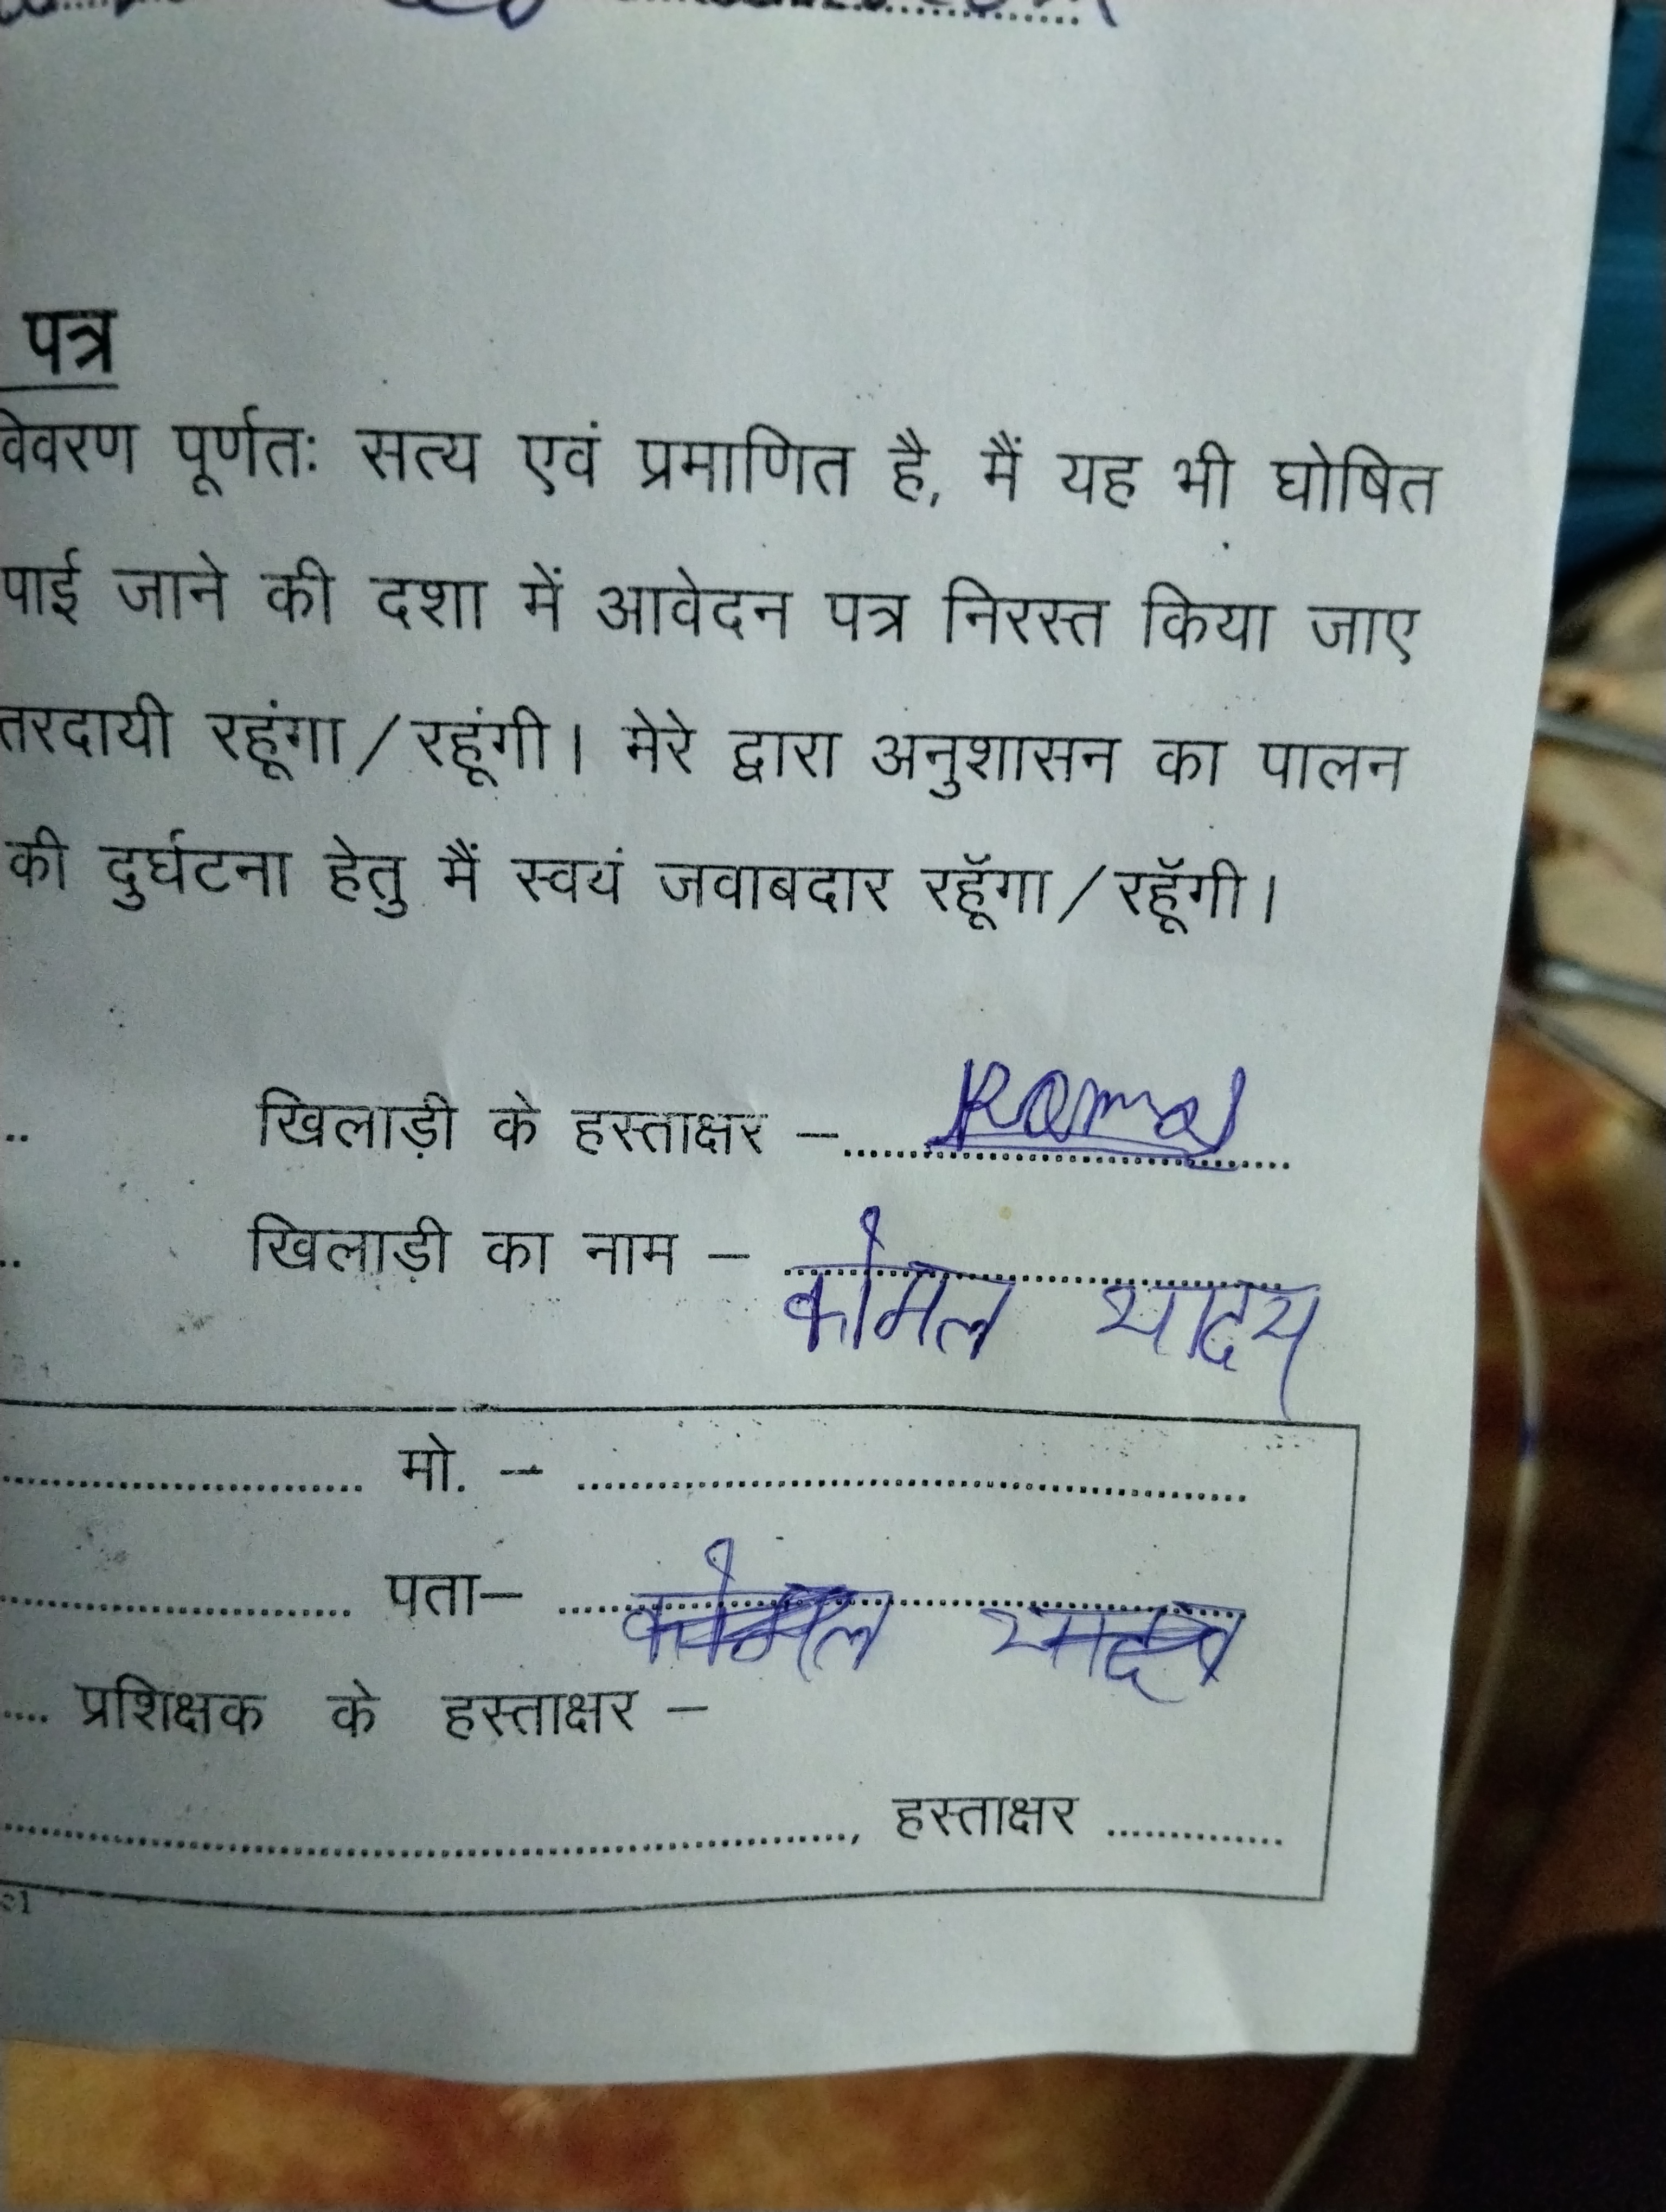 पत्र
विवरण पूर्णतः सत्य एवं प्रमाणित है, मैं यह भी घोषित
पाई जाने की दशा में आवेदन पत्र निरस्त किया जाए
तरदायी रहूंगा/रहूंगी। मेरे द्वारा अनुशासन का पालन
की दुर्घटना हेतु मैं स्वयं जवाबदार रहूॅगा/रहूॅगी।
.. खिलाड़ी के हस्ताक्षर – Komal
.. खिलाड़ी का नाम – कोमल यादव
मो. –
पता– कोमल यादव
.... प्रशिक्षक के हस्ताक्षर –
, हस्ताक्षर